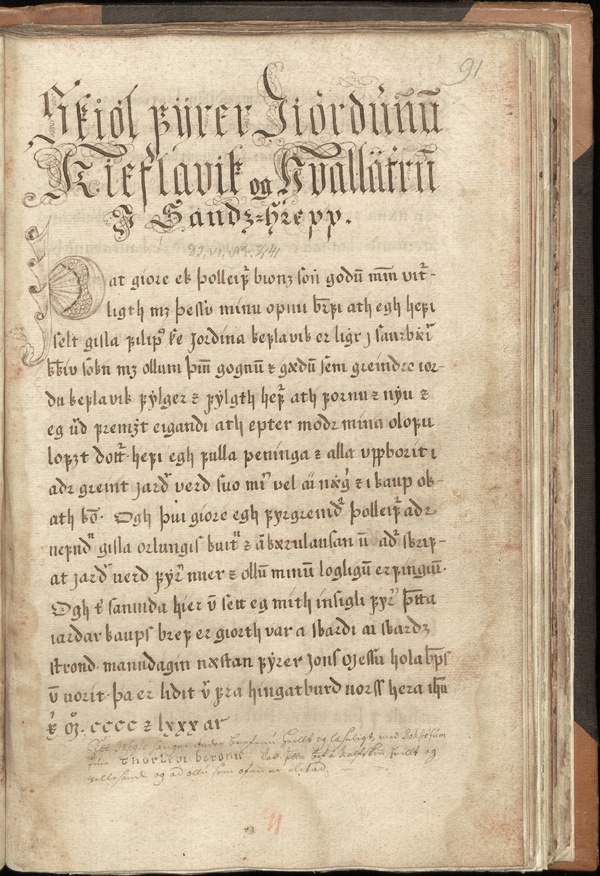 91
Skiöl fÿrer Jiördunū
Kieflavik og Hvallätrū
J Sandz=Hrepp.
Dat giöre ek Þolleifr bionz son godū mm̄ vit-
ligth mz þessu minu opnu brefi ath egh hefi
selt gisla filipsſ jordina keflavik er ligr j saurbæi
kkiv sokn mz ollum þm̄ gognū z gædū sem greindre ior-
du keflavik fylger z fylgth hefr ath fornu z nyu z
eg ūd fremzt eigandi ath epter modr mina olofu
lopzt dottr hefi egh fulla peninga z alla vppborit i
adr greint jardr verd suo mr vel at nægr z i kaup ok-
ath ko. Ogh þui giore egh fyrgreindr Þolleifr adr
nefndū gisla orlungis kuitt z akærulausan ū adr skrif-
at jardr uerd fyr mer z ollū minū logligū erfingiū.
Ogh t sanninda hier ū sett eg mith insigli fyr þetta
iardar kaups bref er giorth var a skardi ai skardz
strond manudagin næstan fyrer Jons messu hola bps
ū uorit þa er lidit v fra hingatburd uorss hera ihū
x̄ oz. cccc z lxxx ar
Thorlevi beronis